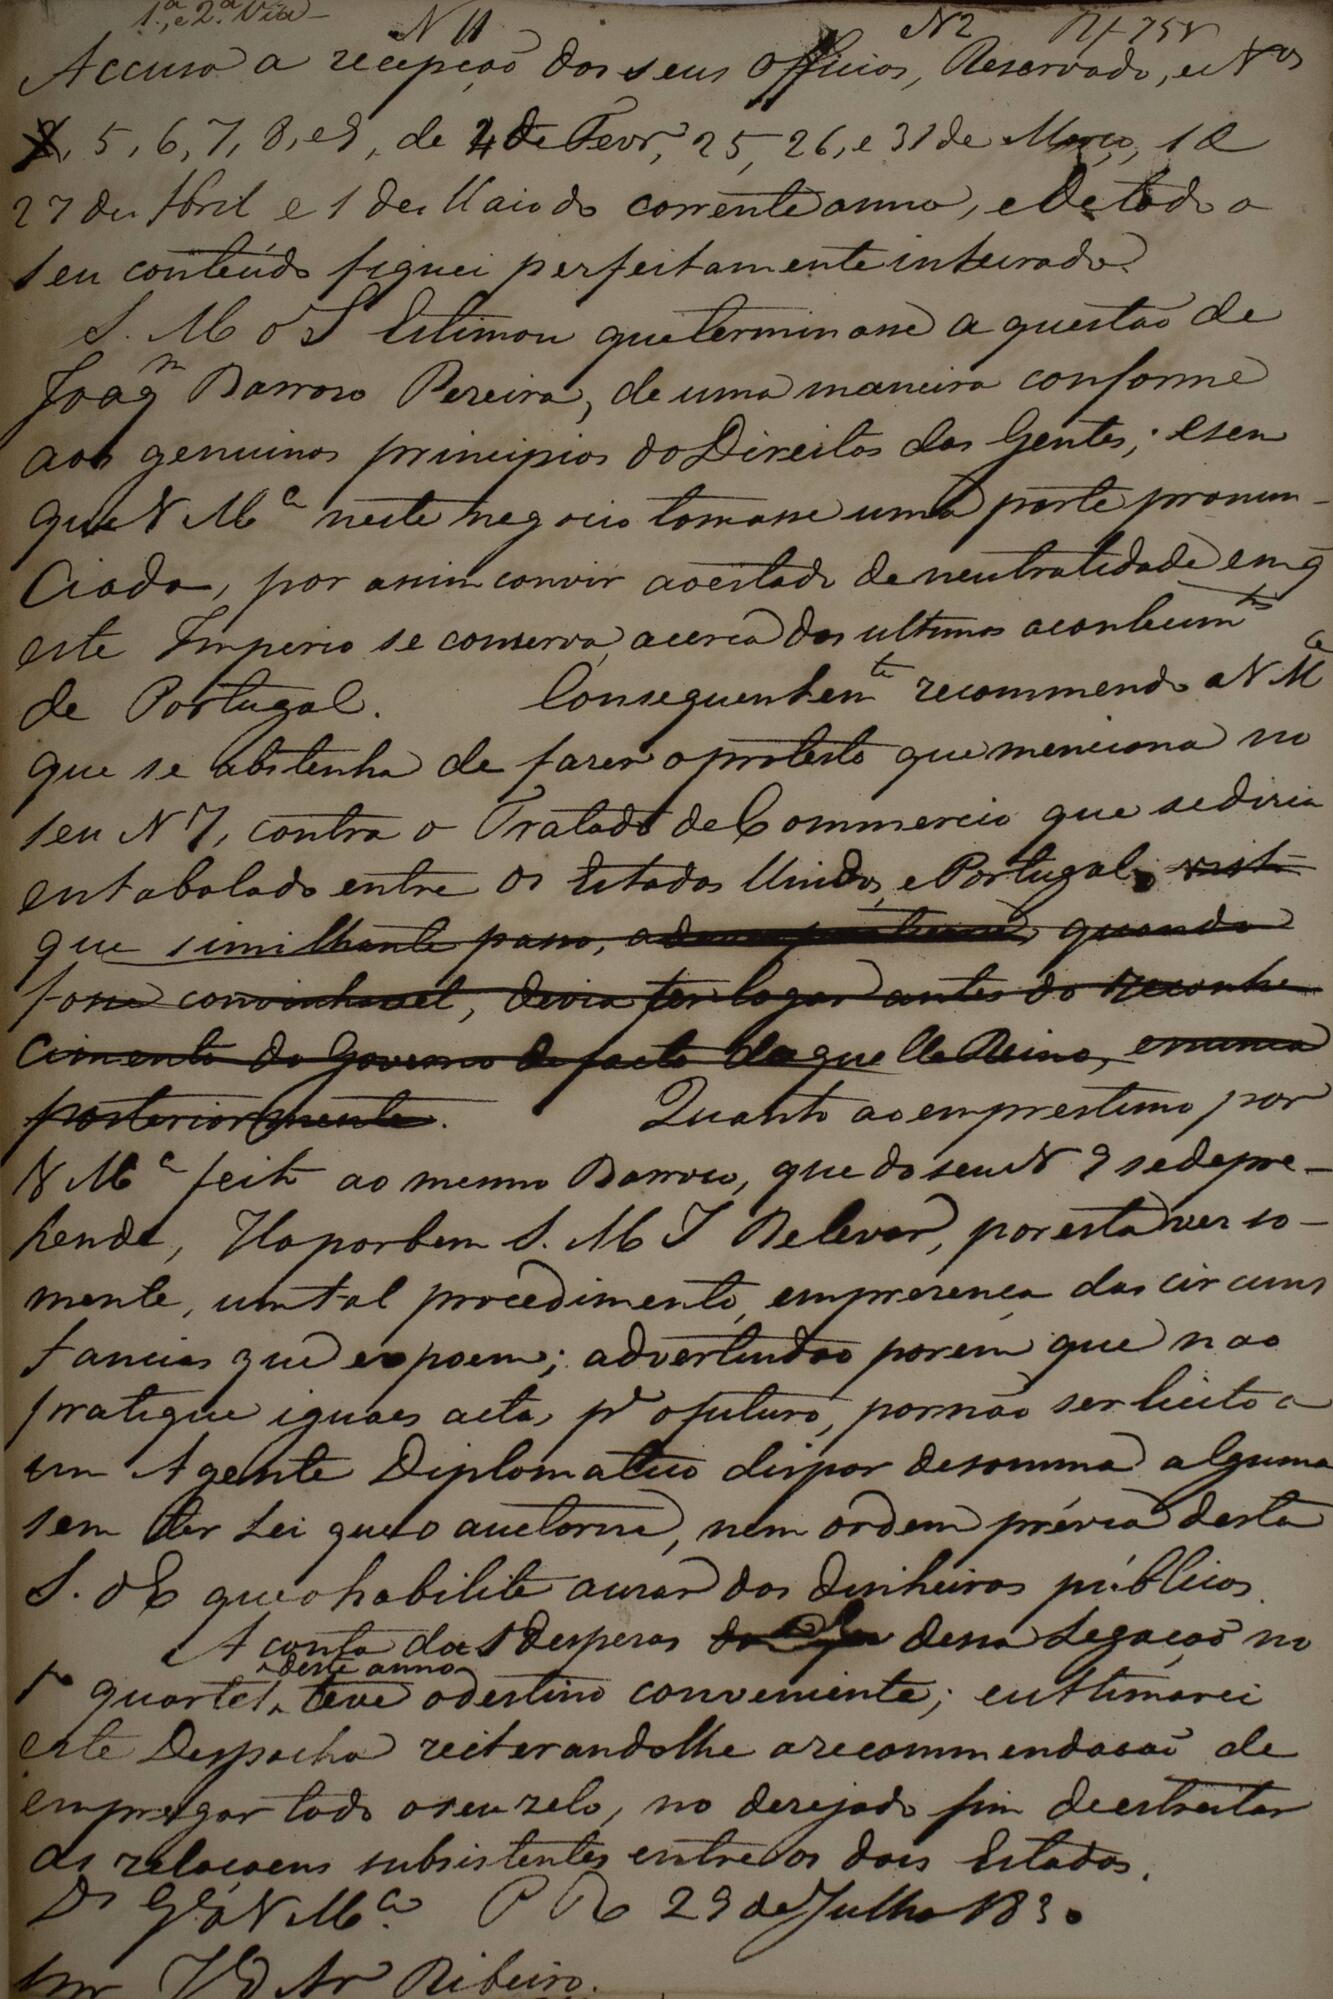 1.ª, e 2.ª Via
N 11 N 2
Accuso a recepção dos seus Officios, Reservado, e N.os
5, 6, 7, 8, e 9, de 4 de Fevr.º, 25, 26, e 31 de Março, 1 e
27 de Abril e 1 de Maio do corrente anno, e de todo o
seu conteúdo fiquei perfeitamente inteirado.
S. M. o I. Estimou que terminasse a questão de
Joaq.m Barroso Pereira, de uma maneira conforme
aos genuinos principios do Direito das Gentes; e sem
que V M.ce neste negocio tomasse uma parte pronun-
ciada, por assim convir ao estado de neutralidade em q
este Imperio se conserva, acerca dos ultimos acontecim.tos
de Portugal. Consequentem.te recommendo a V M.ce
que se abstenha de fazer o protesto que menciona no
seu N 7, contra o Tratado de Commercio que se diria
entabolado entre os Estados Unidos, e Portugal, visto
que similhante passo, quando
fosse convinhavel, devia ter logar antes do reconhe
cimento do Governo de facto daquelle Reino, e nunca
posteriormente. Quanto ao emprestimo por
V M.ce feito ao mesmo Barroso, que do seu N 9 se depre-
hende, Ha por bem S. M. I. Relevar, por esta vez so-
mente, um tal procedimento, em presença das circuns
tancias que expoem; advertindo porém que não
pratique iguaes actos p.ª o futuro, por não ser licito a
um Agente Diplomatico dispor de somma alguma
sem ter Lei que o auctorise, nem ordem prévia desta
S. d'E que o habilite a usar dos dinheiros públicos.
A conta das despesas dessa Legação no
1º quartel deste anno teve o destino conveniente; e ultimarei
este Despacho reiterando lhe a recommendação de
empregar todo o seu zelo, no desejado fim de estreitar
as relaçoens subsistentes entre os dois Estados.
D.s G.e a V M.ce P R 29 de Julho 1830
Snr J. d'Ar Ribeiro.